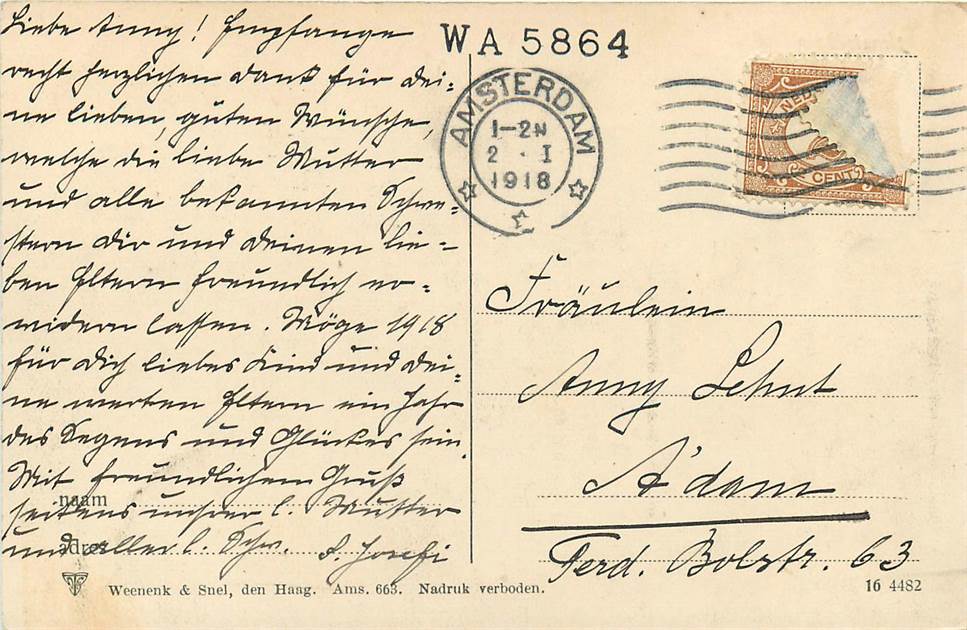 WA 5864
Liebe Anny! Empfange
recht herzlichen Dank für dei-
ne lieben, guten Wünsche,
welche die liebe Mutter
und alle bekannten Schwe-
stern dir und deinen lie-
ben Eltern freundlich er-
widern lassen. Möge 1918
für dich liebes Kind und dei-
ne werten Eltern ein Jahr
des Segens und Glückes sein.
Mit freundlichem Gruß
seitens unsrer l. Mutter
und aller l. Schw.
S. Josefi
naam
adres
AMSTERDAM
1-2N
2 . I
1918
NED
CENT
Fräulein
Anny Lehnt
A'dam
Ferd. Bolstr. 63
Weenenk & Snel, den Haag. Ams. 663. Nadruk verboden.
16 4482